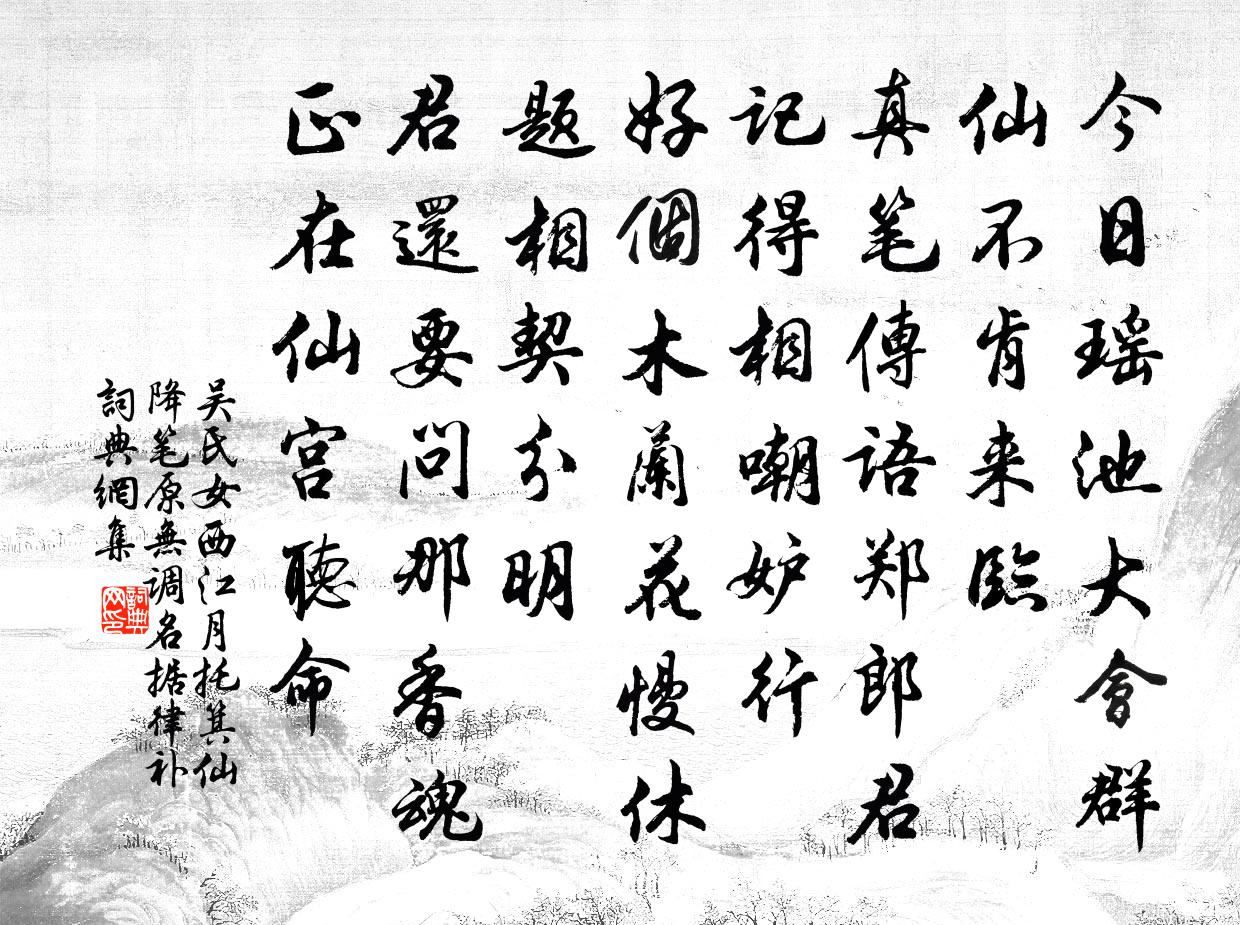 今日瑶池大會群
仙不肯来臨
真笔傳語郑郎君
記得相嘲妒行
好個木蘭花慢休
題相契分明
君還要問那香魂
正在仙宫聽命
吴氏女西江月托箕仙
降笔原無調名据律补
詞典網集
詞典
网印